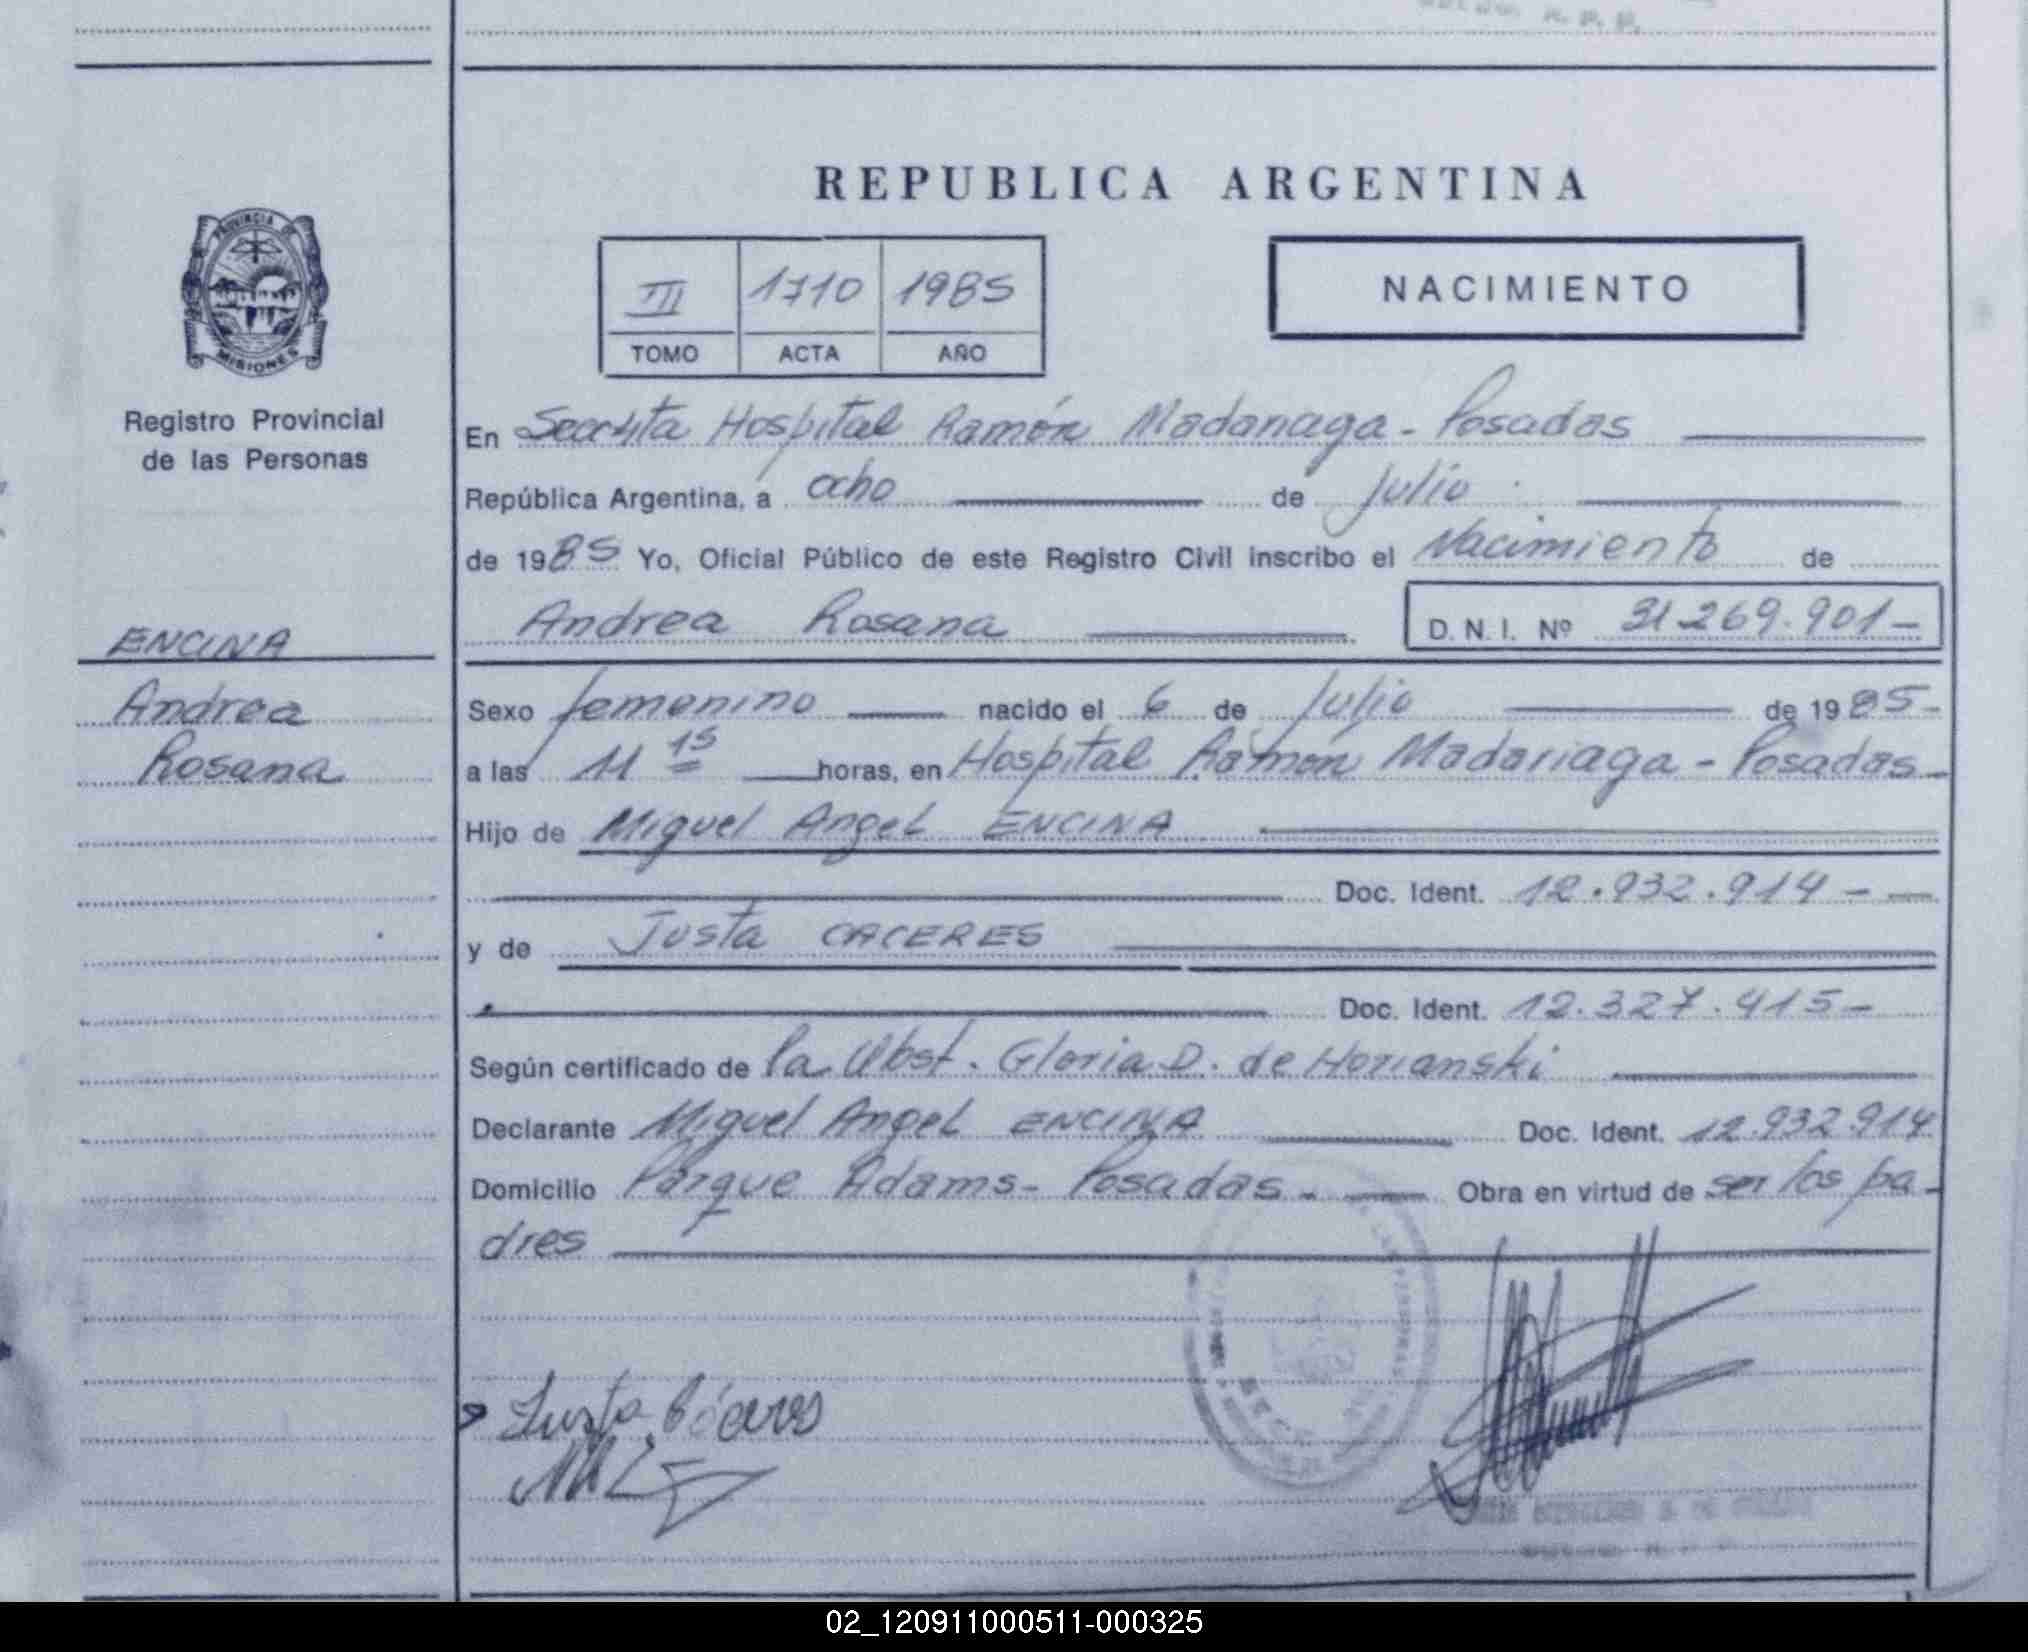 REPUBLICA ARGENTINA
PROVINCIA DE
MISIONES
Registro Provincial
de las Personas
III 1710 1985
TOMO ACTA AÑO
NACIMIENTO
En Hospital Ramón Madariaga - Posadas
República Argentina, a ocho de julio
de 1985 Yo, Oficial Público de este Registro Civil inscribo el Nacimiento de
Andrea Rosana D. N. I. Nº 31.269.901-
ENCINA
Andrea
Rosana
Sexo femenino nacido el 6 de Julio de 1985-
a las 11 15 horas, en Hospital Ramón Madariaga - Posadas-
Hijo de Miguel Angel ENCINA
Doc. Ident. 12.932.914-
y de Justa CACERES
Doc. Ident. 12.327.415-
Según certificado de la Obst. Gloria D. de Horianski
Declarante Miguel Angel ENCINA Doc. Ident. 12.932.914
Domicilio Parque Adams- Posadas- Obra en virtud de ser los pa-
dres
Justa Cáceres
02_120911000511-000325